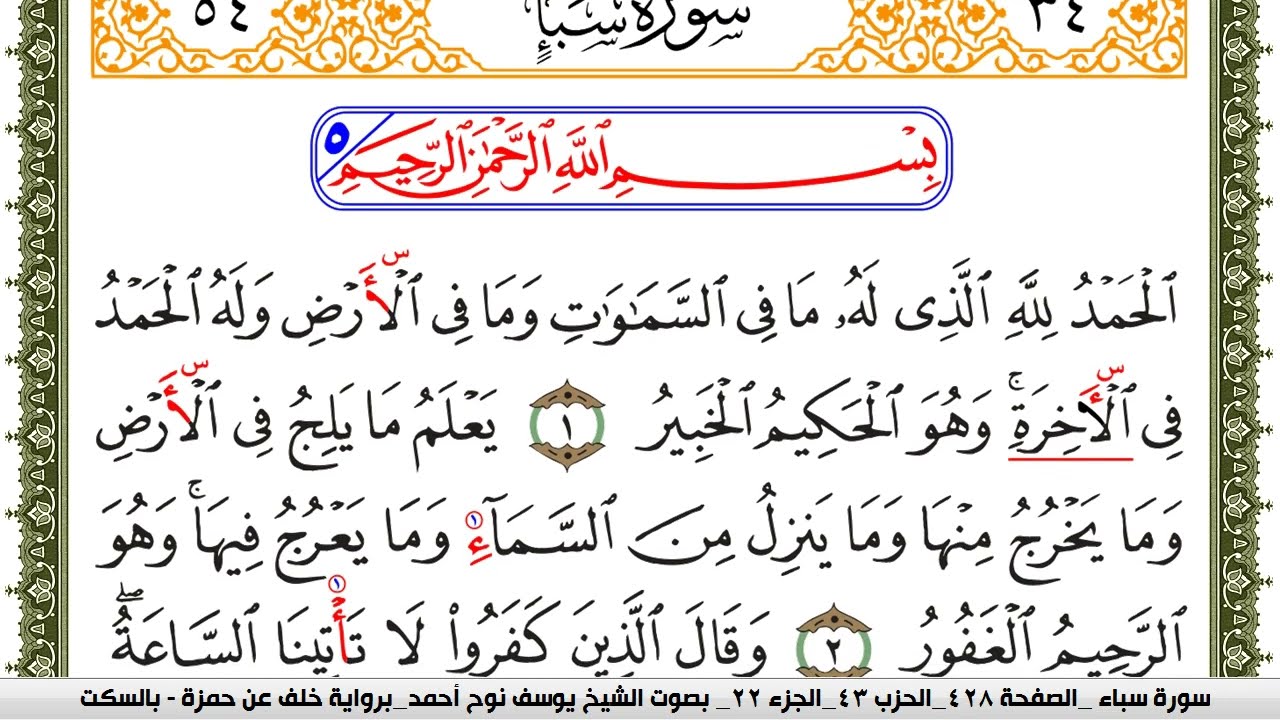 ٣٤ سورة سبإ ٥٤
بِسْمِ اللَّهِ الرَّحْمَٰنِ الرَّحِيمِ ٥
الْحَمْدُ لِلَّهِ الَّذِى لَهُۥ مَا فِى السَّمَٰوَٰتِ وَمَا فِى الْأَرْضِ وَلَهُ الْحَمْدُ
فِى الْأَخِرَةِۚ وَهُوَ الْحَكِيمُ الْخَبِيرُ ١ يَعْلَمُ مَا يَلِجُ فِى الْأَرْضِ
وَمَا يَخْرُجُ مِنْهَا وَمَا يَنزِلُ مِنَ السَّمَآءِ وَمَا يَعْرُجُ فِيهَاۚ وَهُوَ
الرَّحِيمُ الْغَفُورُ ٢ وَقَالَ الَّذِينَ كَفَرُوا۟ لَا تَأْتِينَا السَّاعَةُۖ
سورة سباء _الصفحة ٤٢٨_الحزب ٤٣_الجزء ٢٢_ بصوت الشيخ يوسف نوح أحمد_برواية خلف عن حمزة - بالسكت